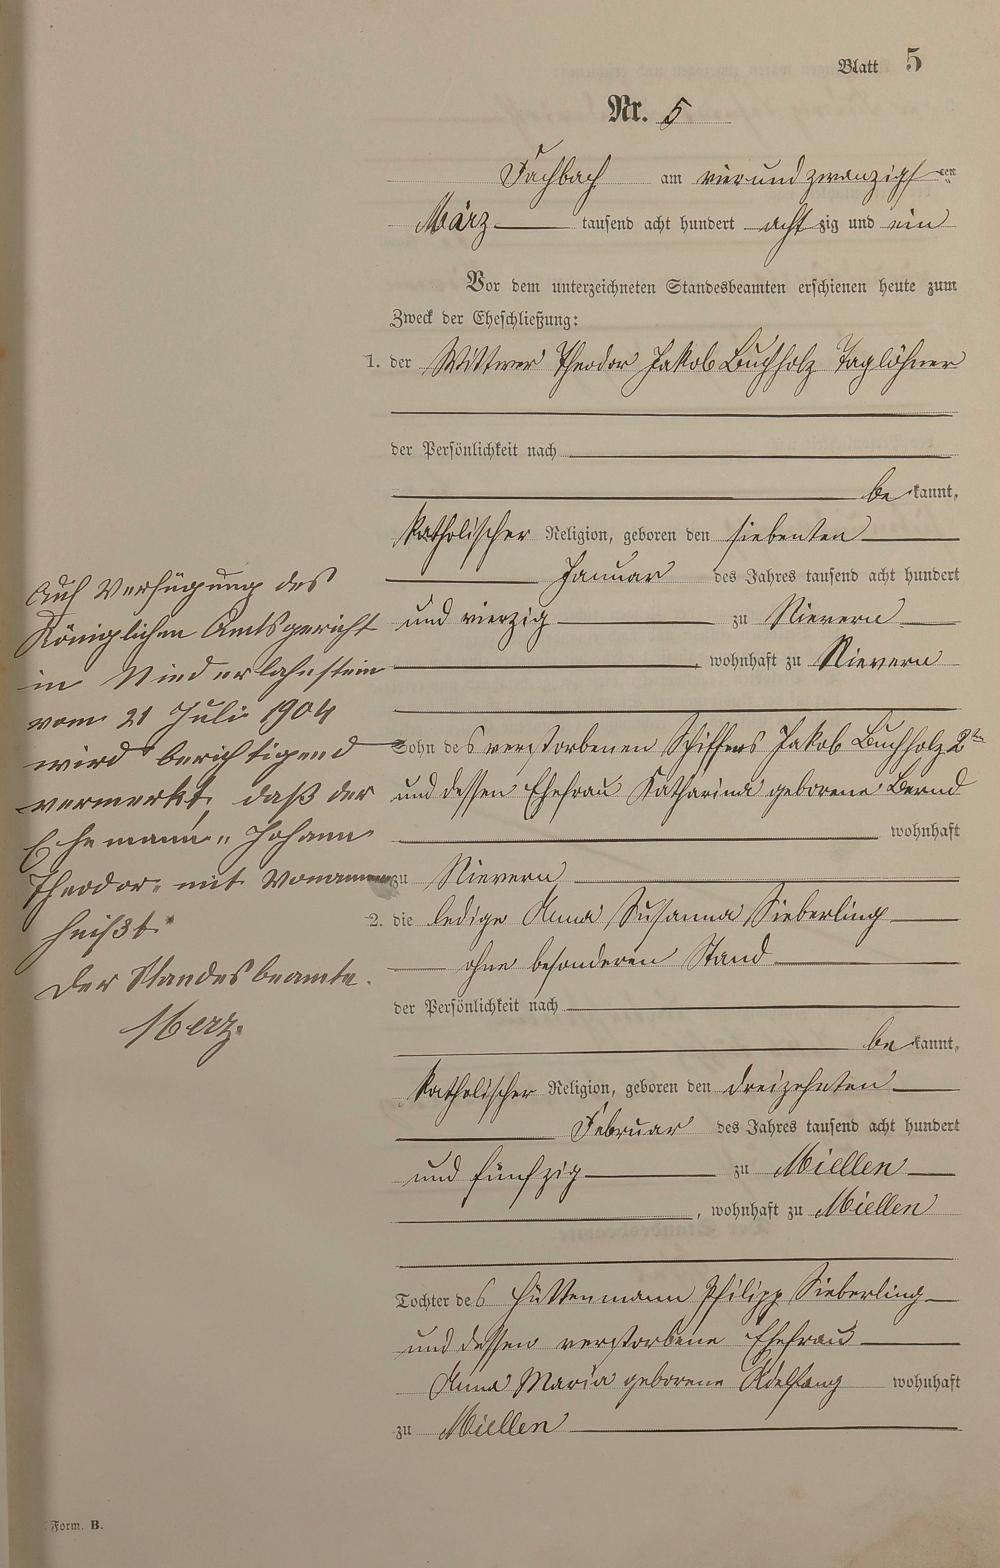 Blatt 5
Nr. 5
Fachbach am vierundzwanzigsten
März tausend acht hundert achtzig und ein
Vor dem unterzeichneten Standesbeamten erschienen heute zum
Zweck der Eheschließung:
1. der Wittwer Theodor Jakob Buchholz Taglöhner
der Persönlichkeit nach
bekannt,
katholischer Religion, geboren den siebenten
Januar des Jahres tausend acht hundert
und vierzig zu Nievern
, wohnhaft zu Nievern
Sohn des verstorbenen Schiffers Jakob Buchholz 2ten
und dessen Ehefrau Katharina geborene Bernd
wohnhaft
zu Nievern
2. die ledige Anna Susanna Sieberling
ohne besonderen Stand
der Persönlichkeit nach
bekannt,
katholischer Religion, geboren den dreizehnten
Februar des Jahres tausend acht hundert
und fünfzig zu Miellen
, wohnhaft zu Miellen
Tochter des Hüttenmann Philipp Sieberling
und dessen verstorbene Ehefrau
Anna Maria geborene wohnhaft
zu Miellen
Auf Verfügung des
Königlichen Amtsgericht
in Niederlahnstein
vom 21 Juli 1904
wird berichtigend
vermerkt, daß der
Ehemann „Johann
Theodor" mit Vonamen
heißt.
Der Standesbeamte.
Merz.
Form. B.